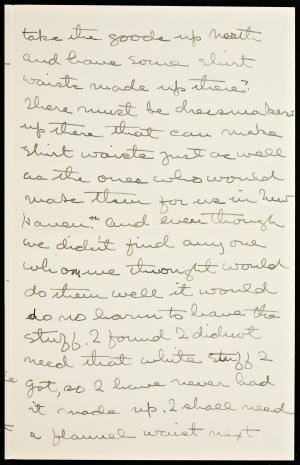 take the goods up north
and have some shirt
waists made up there?
There must be dressmakers
up there that can make
shirt waists just as well
as the ones who would
make them for us in New
Haven. And even though
we didn't find any one
whom we thought would
do them well it would
do no harm to have the
stuff. I found I didn't
need that white stuff I
got, so I have never had
it made up. I shall need
a flannel waist next